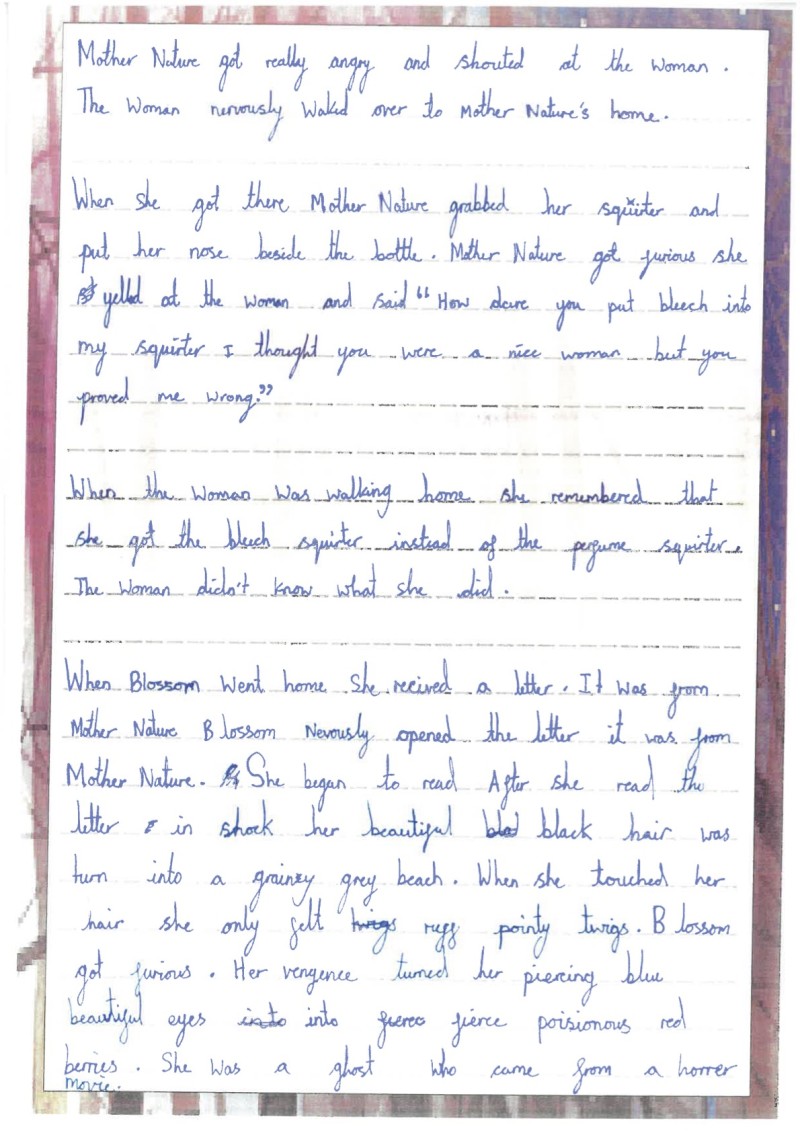 Mother Nature got really angry and shouted at the woman.
The Woman nervously Walked over to Mother Nature's home.
When she got there Mother Nature grabbed her squirter and
put her nose beside the bottle. Mother Nature got furious she
yelled at the woman and said "How dare you put bleech into
my squirter I thought you were a nice woman but you
proved me wrong."
When the Woman Was walking home she remembered that
she got the bleech squirter instead of the perfume squirter.
The Woman didn't know what she did.
When Blossom Went home She recived a letter. It Was from
Mother Nature Blossom Nevously opened the letter it was from
Mother Nature. She began to read After she read the
letter in shock her beautiful black hair was
turn into a grainy grey beach. When she touched her
hair she only felt twigs ruff pointy twigs. Blossom
got furious. Her vengence turned her piercing blue
beautiful eyes into into fierce poisionous red
berries. She Was a ghost who came from a horrer
movie.